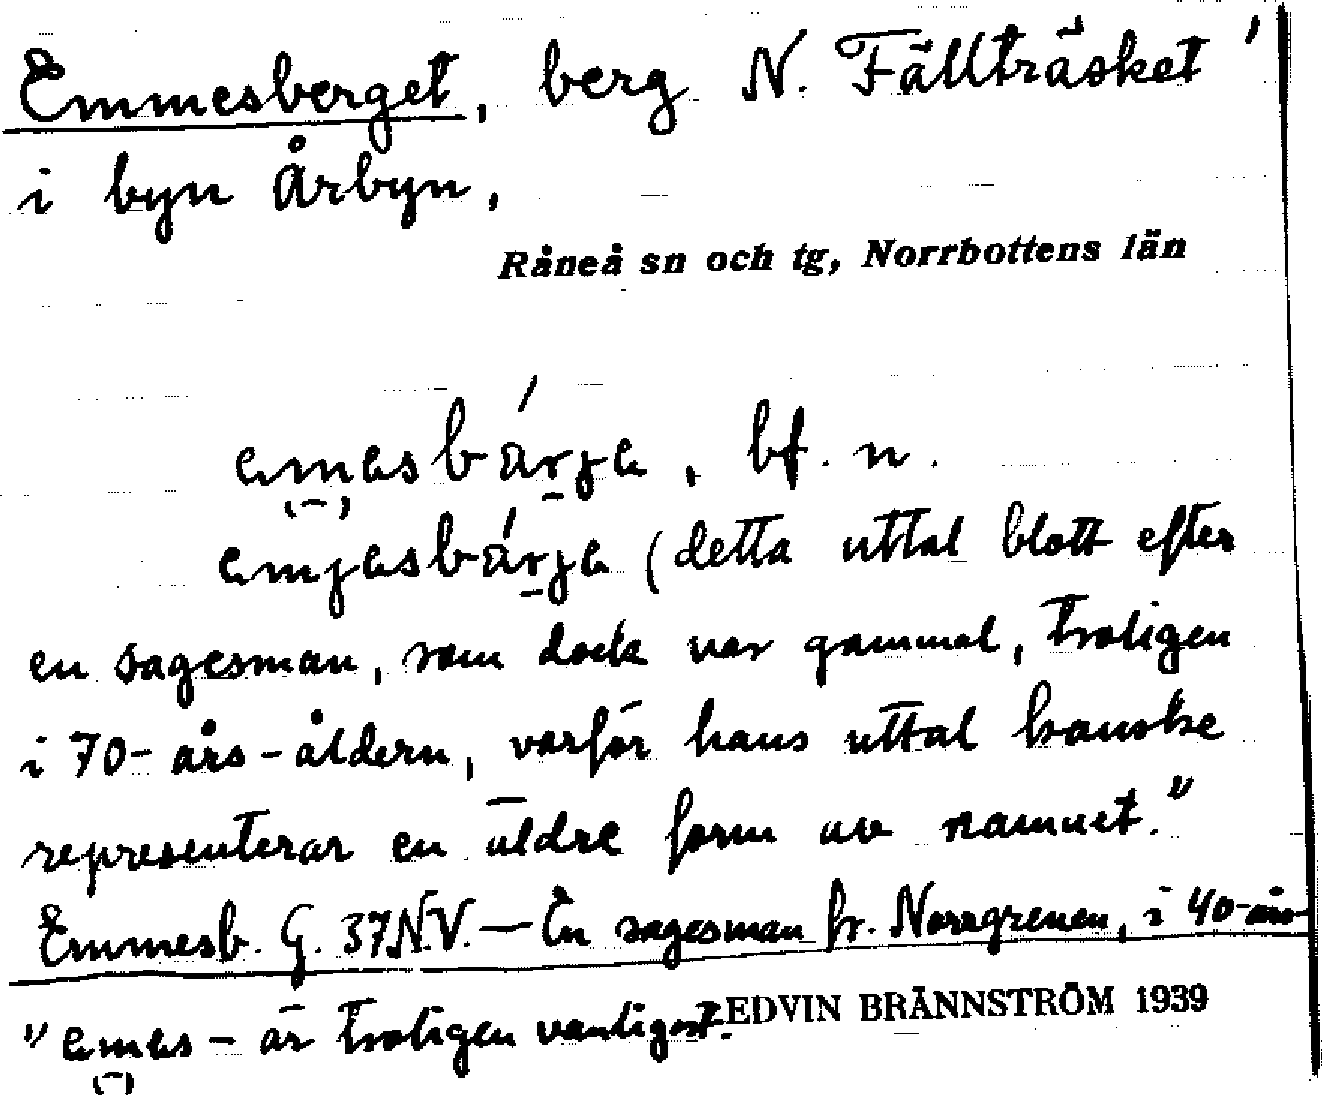 Emmesberget, berg N. Fällträsket
i byn Årbyn,
Råneå sn och tg, Norrbottens län
emesbárje, bf. n.
emjesbárje (detta uttal blott efter
en sagesman, som dock var gammal, troligen
i 70-års-åldern, varför hans uttal kanske
representerar en äldre form av namnet."
Emmesb. G. 37 N.V. — En sagesman fr. Norrgrenen, i 40-års-
" emes - är troligen vanligast.
EDVIN BRÄNNSTRÖM 1939